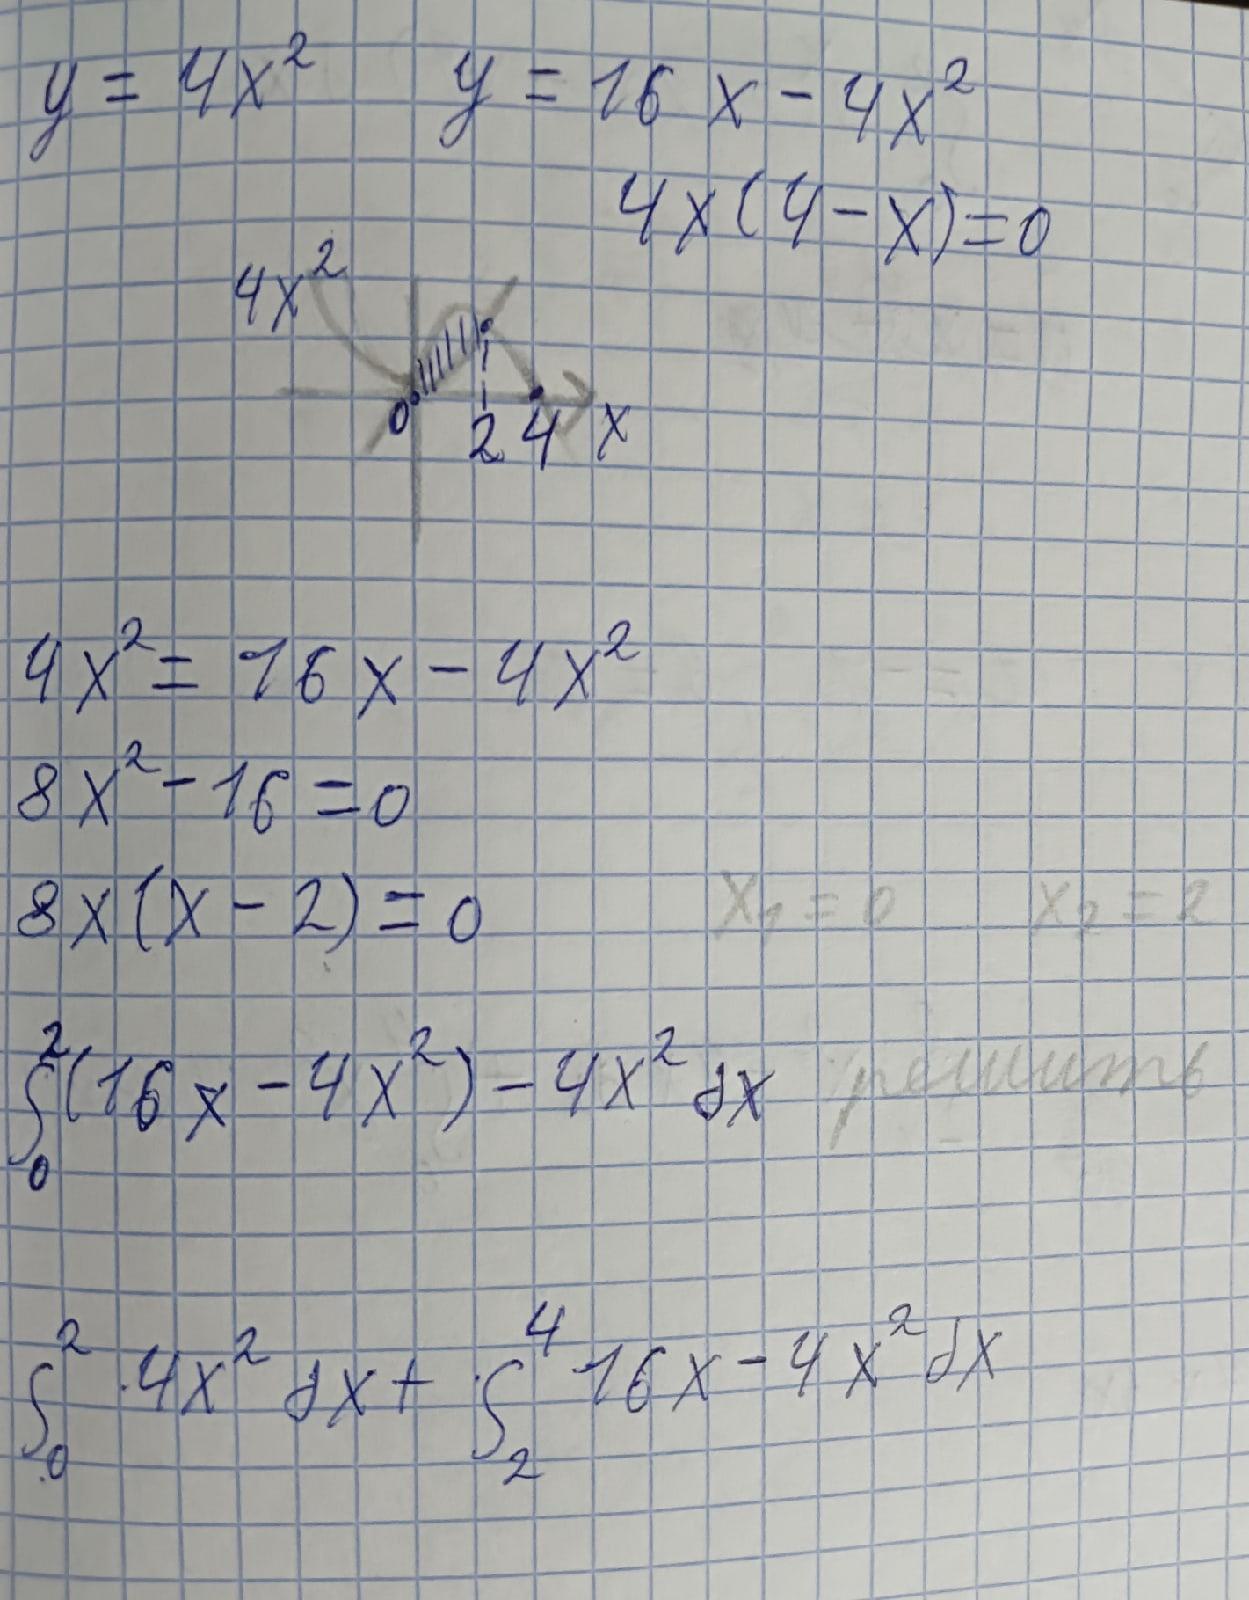 y = 4x² y = 16x - 4x²
4x(4 - x) = 0
4x²
0 2 4 x
4x² = 16x - 4x²
8x² - 16 = 0
8x(x - 2) = 0 x₁ = 0 x₂ = 2
∫₀² (16x - 4x²) - 4x² dx решить
∫₀² 4x² dx + ∫₂⁴ 16x - 4x² dx